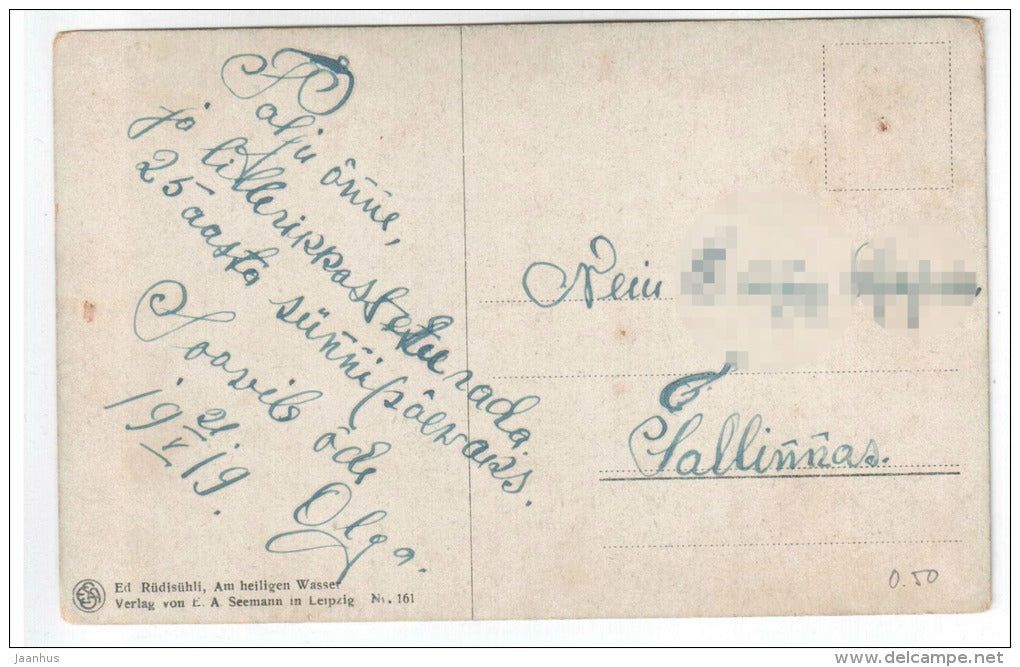 Palju õnne,
ja lillerikkast eluteerada
25 aasta sünnipäewaks.
Soovib õde
Olga.
19 21/V 19.
Nein
Tallinnas.
Ed Rüdisühli, Am heiligen Wasser
Verlag von E. A. Seemann in Leipzig Nr. 161
0.50
jaanhus
www.delcampe.net